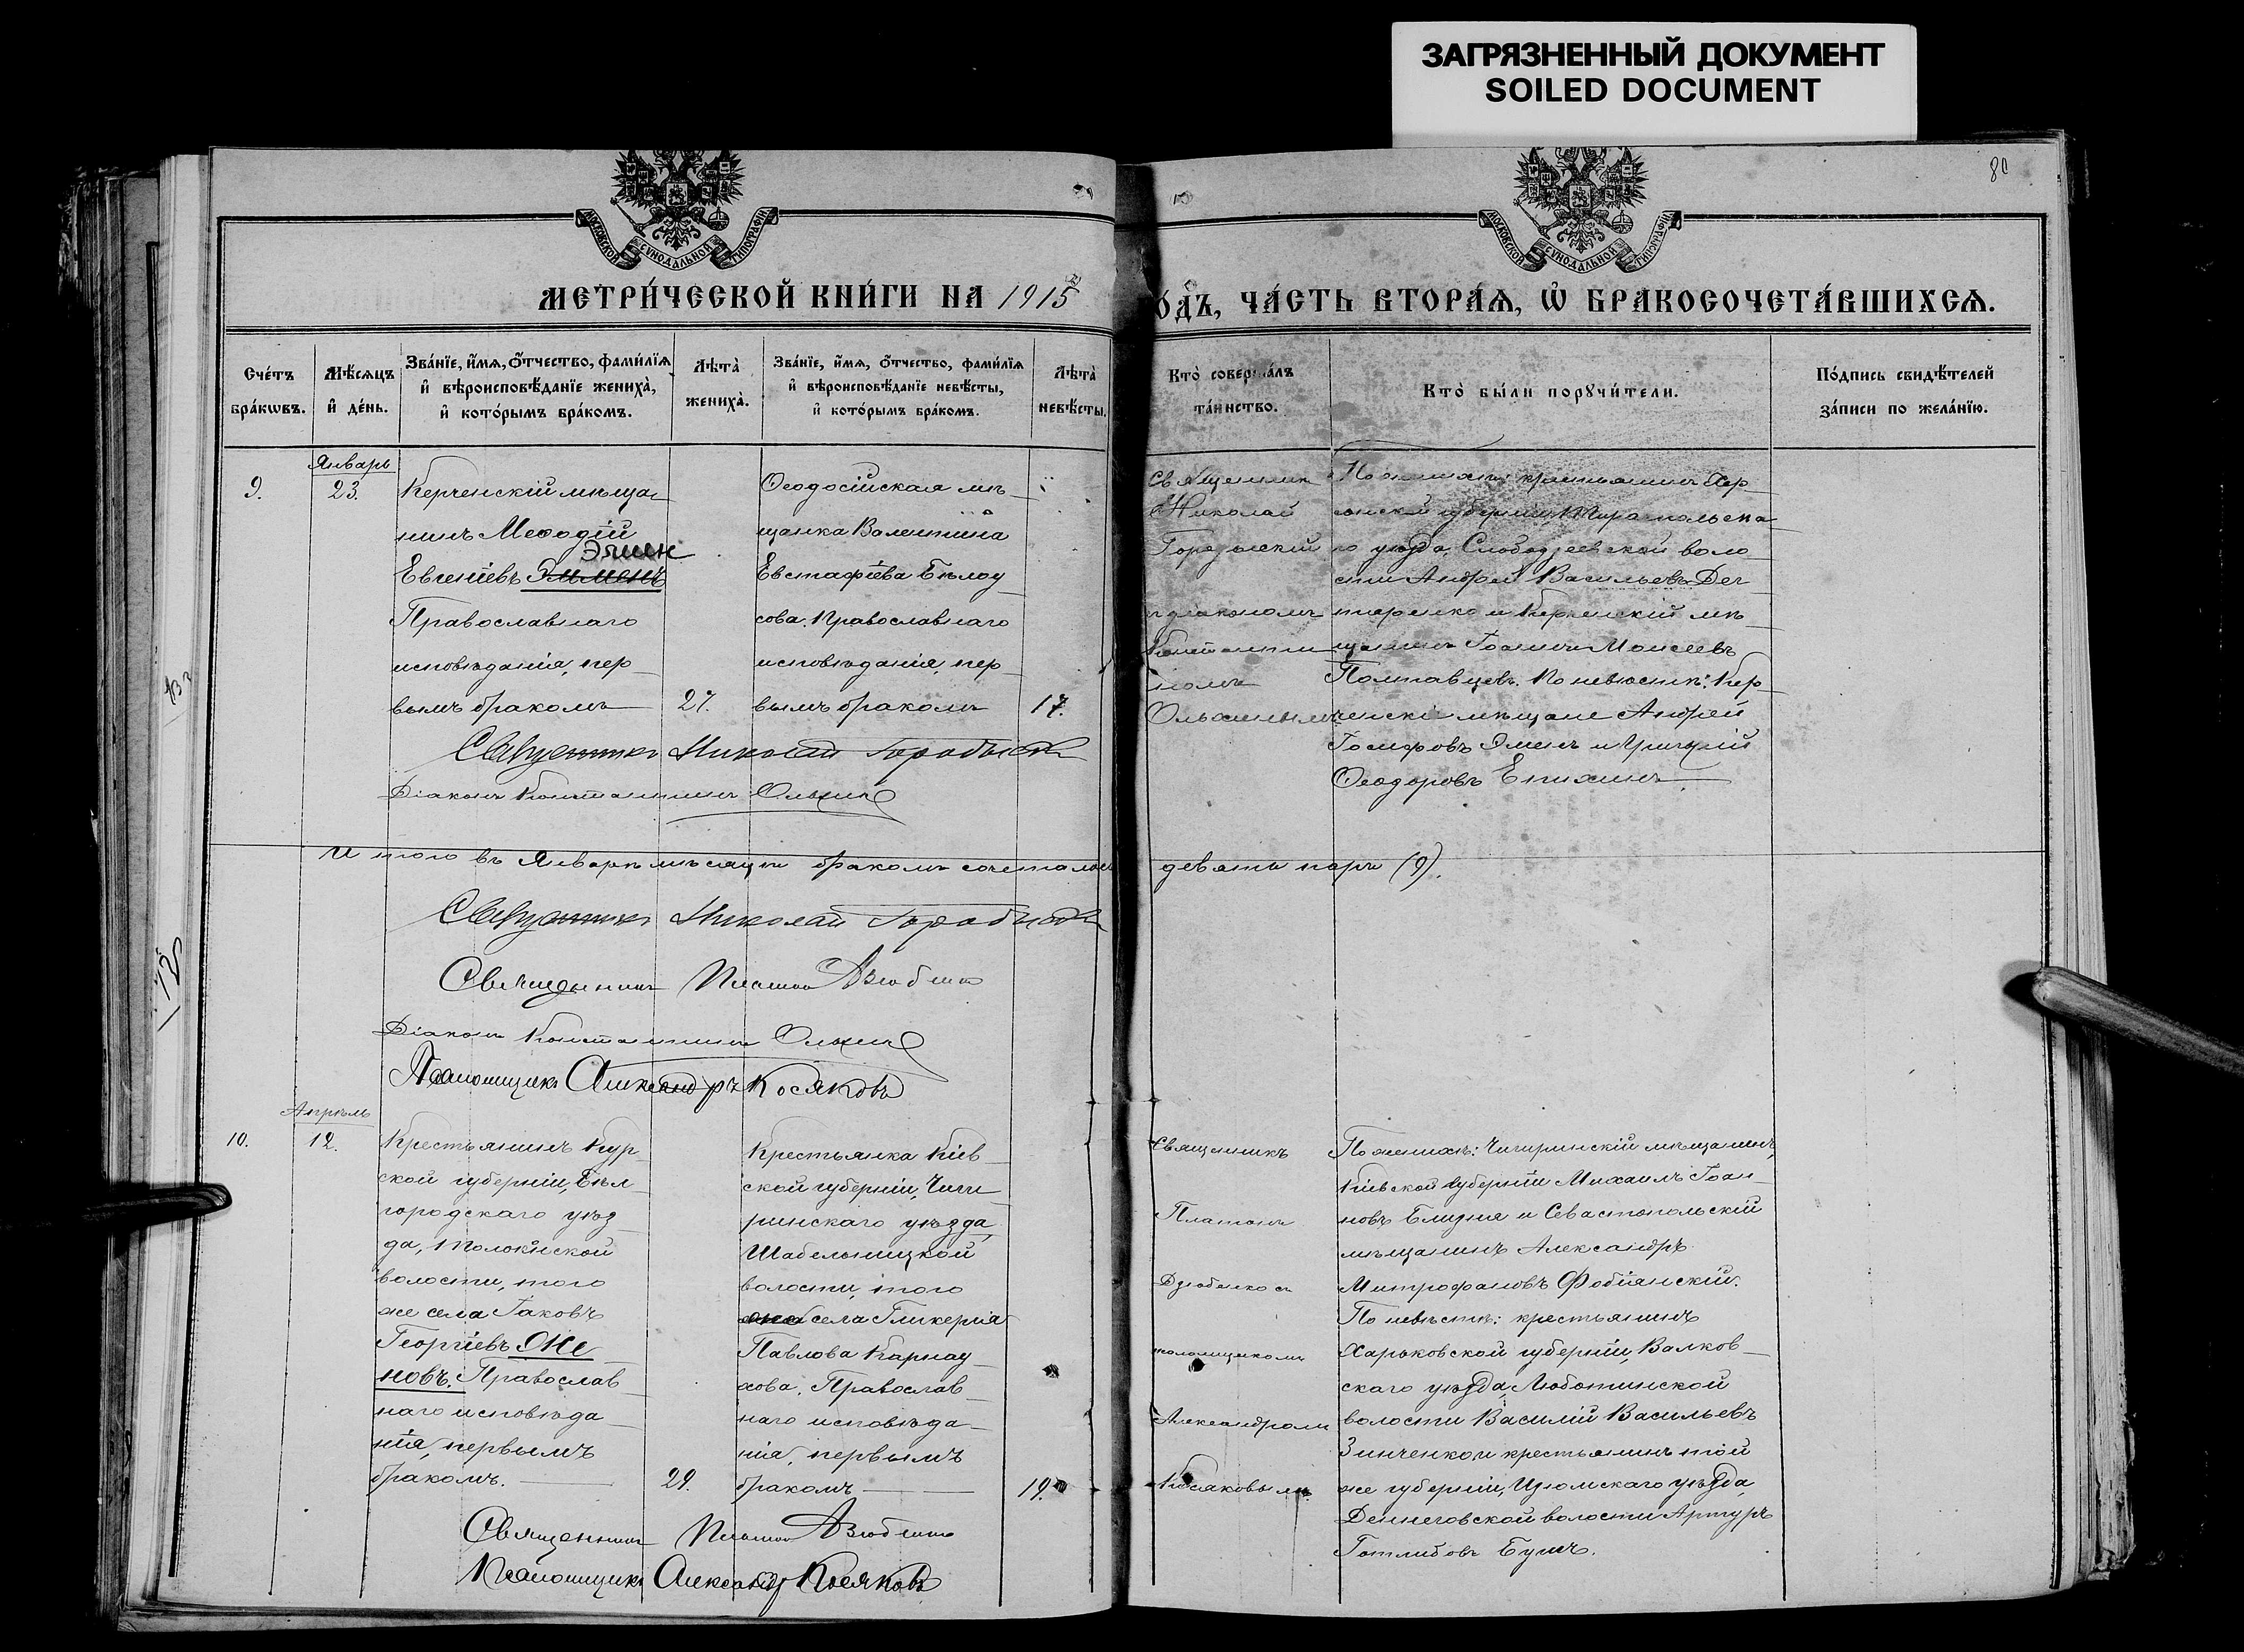 ЗАГРЯЗНЕННЫЙ ДОКУМЕНТ
SOILED DOCUMENT
80
МОСКОВСКОЙ СѴНОДАЛЬНОЙ ТИПОГРАФІИ
МОСКОВСКОЙ СѴНОДАЛЬНОЙ ТИПОГРАФІИ
МЕТРИ́ЧЕСКОЙ КНИ́ГИ НА 1915
О́ДЪ, ЧА́СТЬ ВТОРА́Ѧ, Ѡ҆ БРАКОСОЧЕТА́ВШИХСѦ.
Сче́тъ
бра́кѡвъ.
Мѣ́сѧцъ
и҆ де́нь.
Зва́нїе, и҆́мѧ, ѻ҆́тчество, фами́лїѧ
и҆ вѣроисповѣ́данїе жениха̀,
и҆ кото́рымъ бра́комъ.
Лѣта̀
жениха̀.
Зва́нїе, и҆́мѧ, ѻ҆́тчество, фами́лїѧ
и҆ вѣроисповѣ́данїе невѣ́сты,
и҆ кото́рымъ бра́комъ.
Лѣта̀
невѣ́сты.
Кто̀ соверша́лъ
та́инство.
Кто̀ бы́ли порꙋчи́тели.
По́дпись свидѣ́телей
за́писи по жела́нїю.
Январь
9.
23.
Керченскій мѣща-
нинъ Меѳодій
Эмин
Евгеніевъ Эммень
Православнаго
исповѣданія, пер-
вымъ бракомъ
27.
Ѳеодосійская мѣ-
щанка Валентина
Евстафіева Бѣлоу-
сова. Православнаго
исповѣданія, пер-
вымъ бракомъ
17.
Священник
Николай
діакономъ
По женихѣ: крестьянинъ Хер-
сонской губерніи, Тираспольска-
го уѣзда, Слободзеевской воло-
сти Андрей Васильевъ Дег-
теренко и Керченскій мѣ-
щанинъ Іоаннъ Моисеевъ
Полтавцевъ. По невѣстѣ: Кер-
ченскіе мѣщане Андрей
Іосифовъ Эминъ и Григорій
Ѳеодоровъ Епихинъ.
Священникъ Николай
Діаконъ Константинъ
Итого въ Январѣ мѣсяцѣ бракомъ сочеталось девять паръ (9).
Священникъ Николай
Священникъ Платон Дзюбенко
Діаконъ Константинъ
Псаломщикъ Александръ Косяковъ
Апрѣль
10.
12.
Крестьянинъ Кур-
ской губерніи, Бѣл-
городскаго уѣз-
да, Толоконской
волости, того
же села Іаковъ
Георгіевъ Же-
новъ. Православ-
наго исповѣда-
нія, первымъ
бракомъ.
29.
Крестьянка Кіев-
ской губерніи, Чиги-
ринскаго уѣзда,
Шабельницкой
волости, того
же села Гликерія
Павлова Карнау-
хова. Православ-
наго исповѣда-
нія, первымъ
бракомъ
19.
Священникъ
Платонъ
Дзюбенко съ
псаломщикомъ
Александромъ
Косяковымъ.
По женихѣ: Чигиринскій мѣщанинъ,
Кіевской губерніи Михаилъ Іоан-
новъ и Севастопольскій
мѣщанинъ Александръ
Митрофановъ Фобіанскій.
По невѣстѣ: крестьянинъ
Харьковской губерніи, Валков-
скаго уѣзда, Люботинской
волости Василій Васильевъ
Зинченко и крестьянинъ той
же губерніи, Изюмскаго уѣзда,
волости Артуръ
Готлибовъ
Священникъ Платон Дзюбенко
Псаломщикъ Александръ Косяковъ